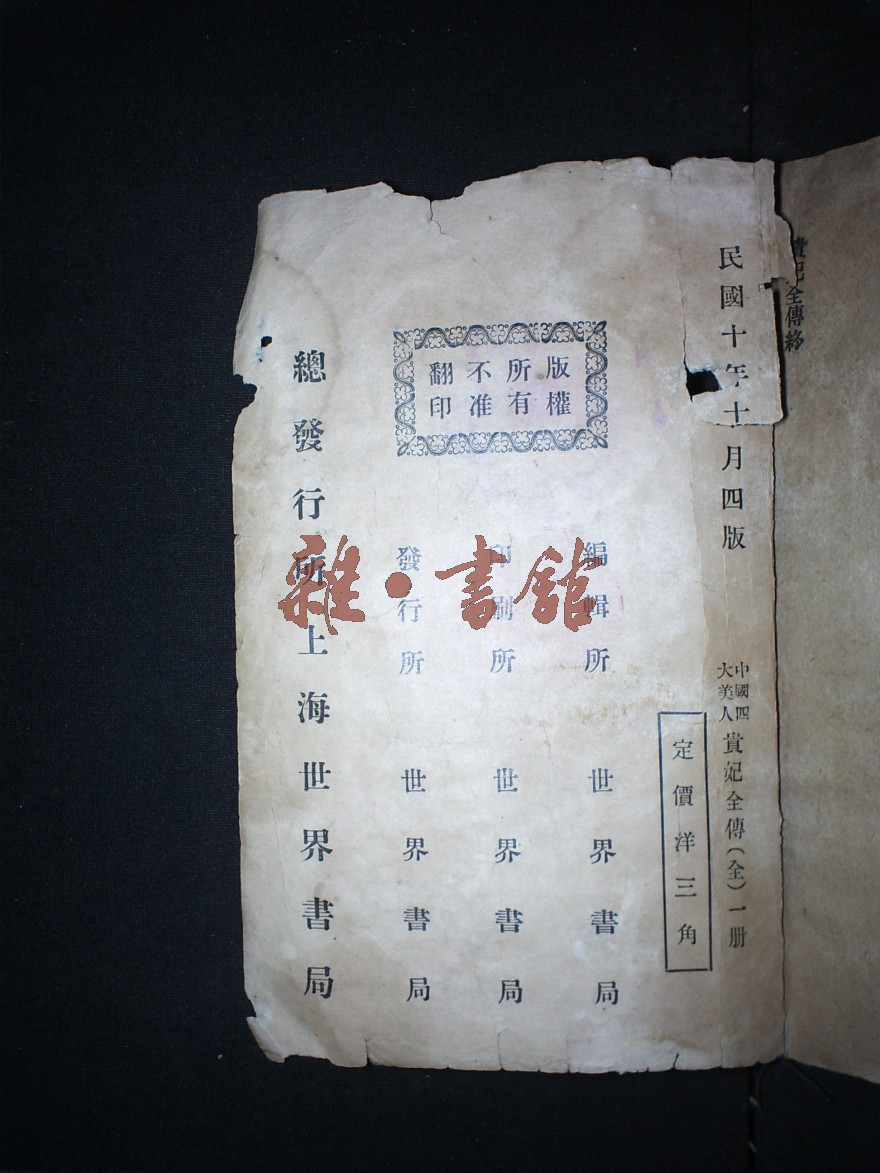 貴妃全傳終
民國十年十月四版
中國四大美人貴妃全傳(全)一册
定價洋三角
版權所有不准翻印
編輯所 世界書局
印刷所 世界書局
發行所 世界書局
總發行所上海世界書局
雜·書館